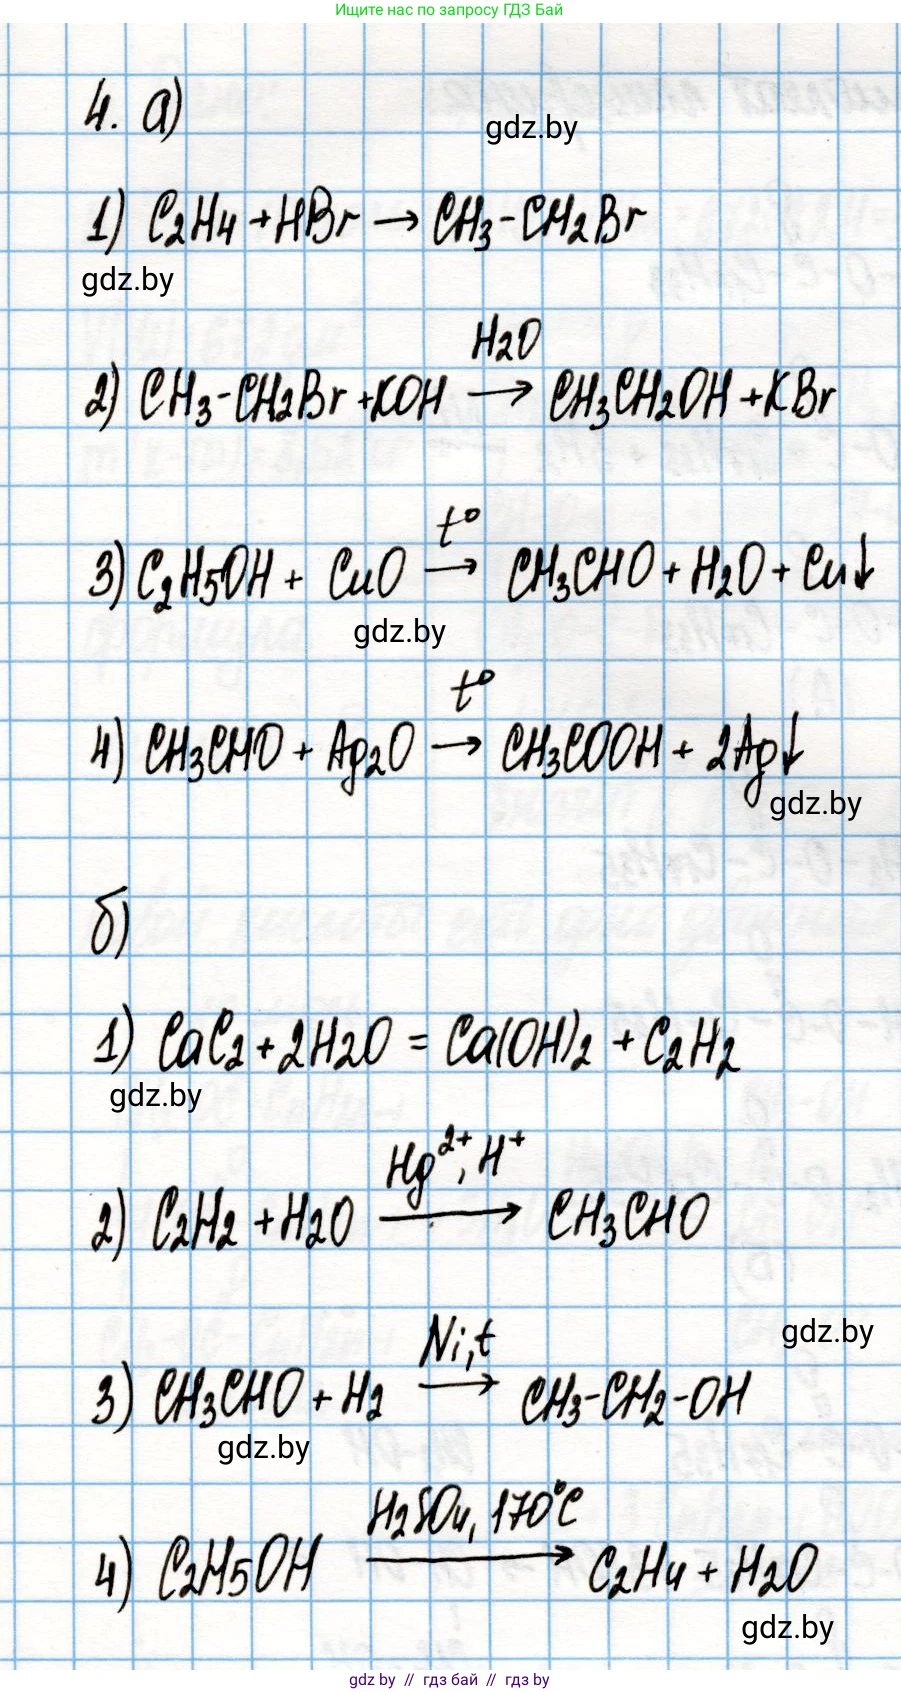 Ищите нас по запросу ГДЗ Бай
4. а)
gdz.by
1) C2H4 + HBr → CH3-CH2Br
gdz.by
H2O
2) CH3-CH2Br + KOH → CH3CH2OH + KBr
t°
3) C2H5OH + CuO → CH3CHO + H2O + Cu↓
gdz.by
t°
4) CH3CHO + Ag2O → CH3COOH + 2Ag↓
gdz.by
б)
1) CaC2 + 2H2O = Ca(OH)2 + C2H2
gdz.by
Hg2+, H+
2) C2H2 + H2O → CH3CHO
gdz.by
Ni, t
3) CH3CHO + H2 → CH3-CH2-OH
gdz.by
H2SO4, 170°C
4) C2H5OH → C2H4 + H2O
gdz.by
gdz by // гдз бай // gdz by